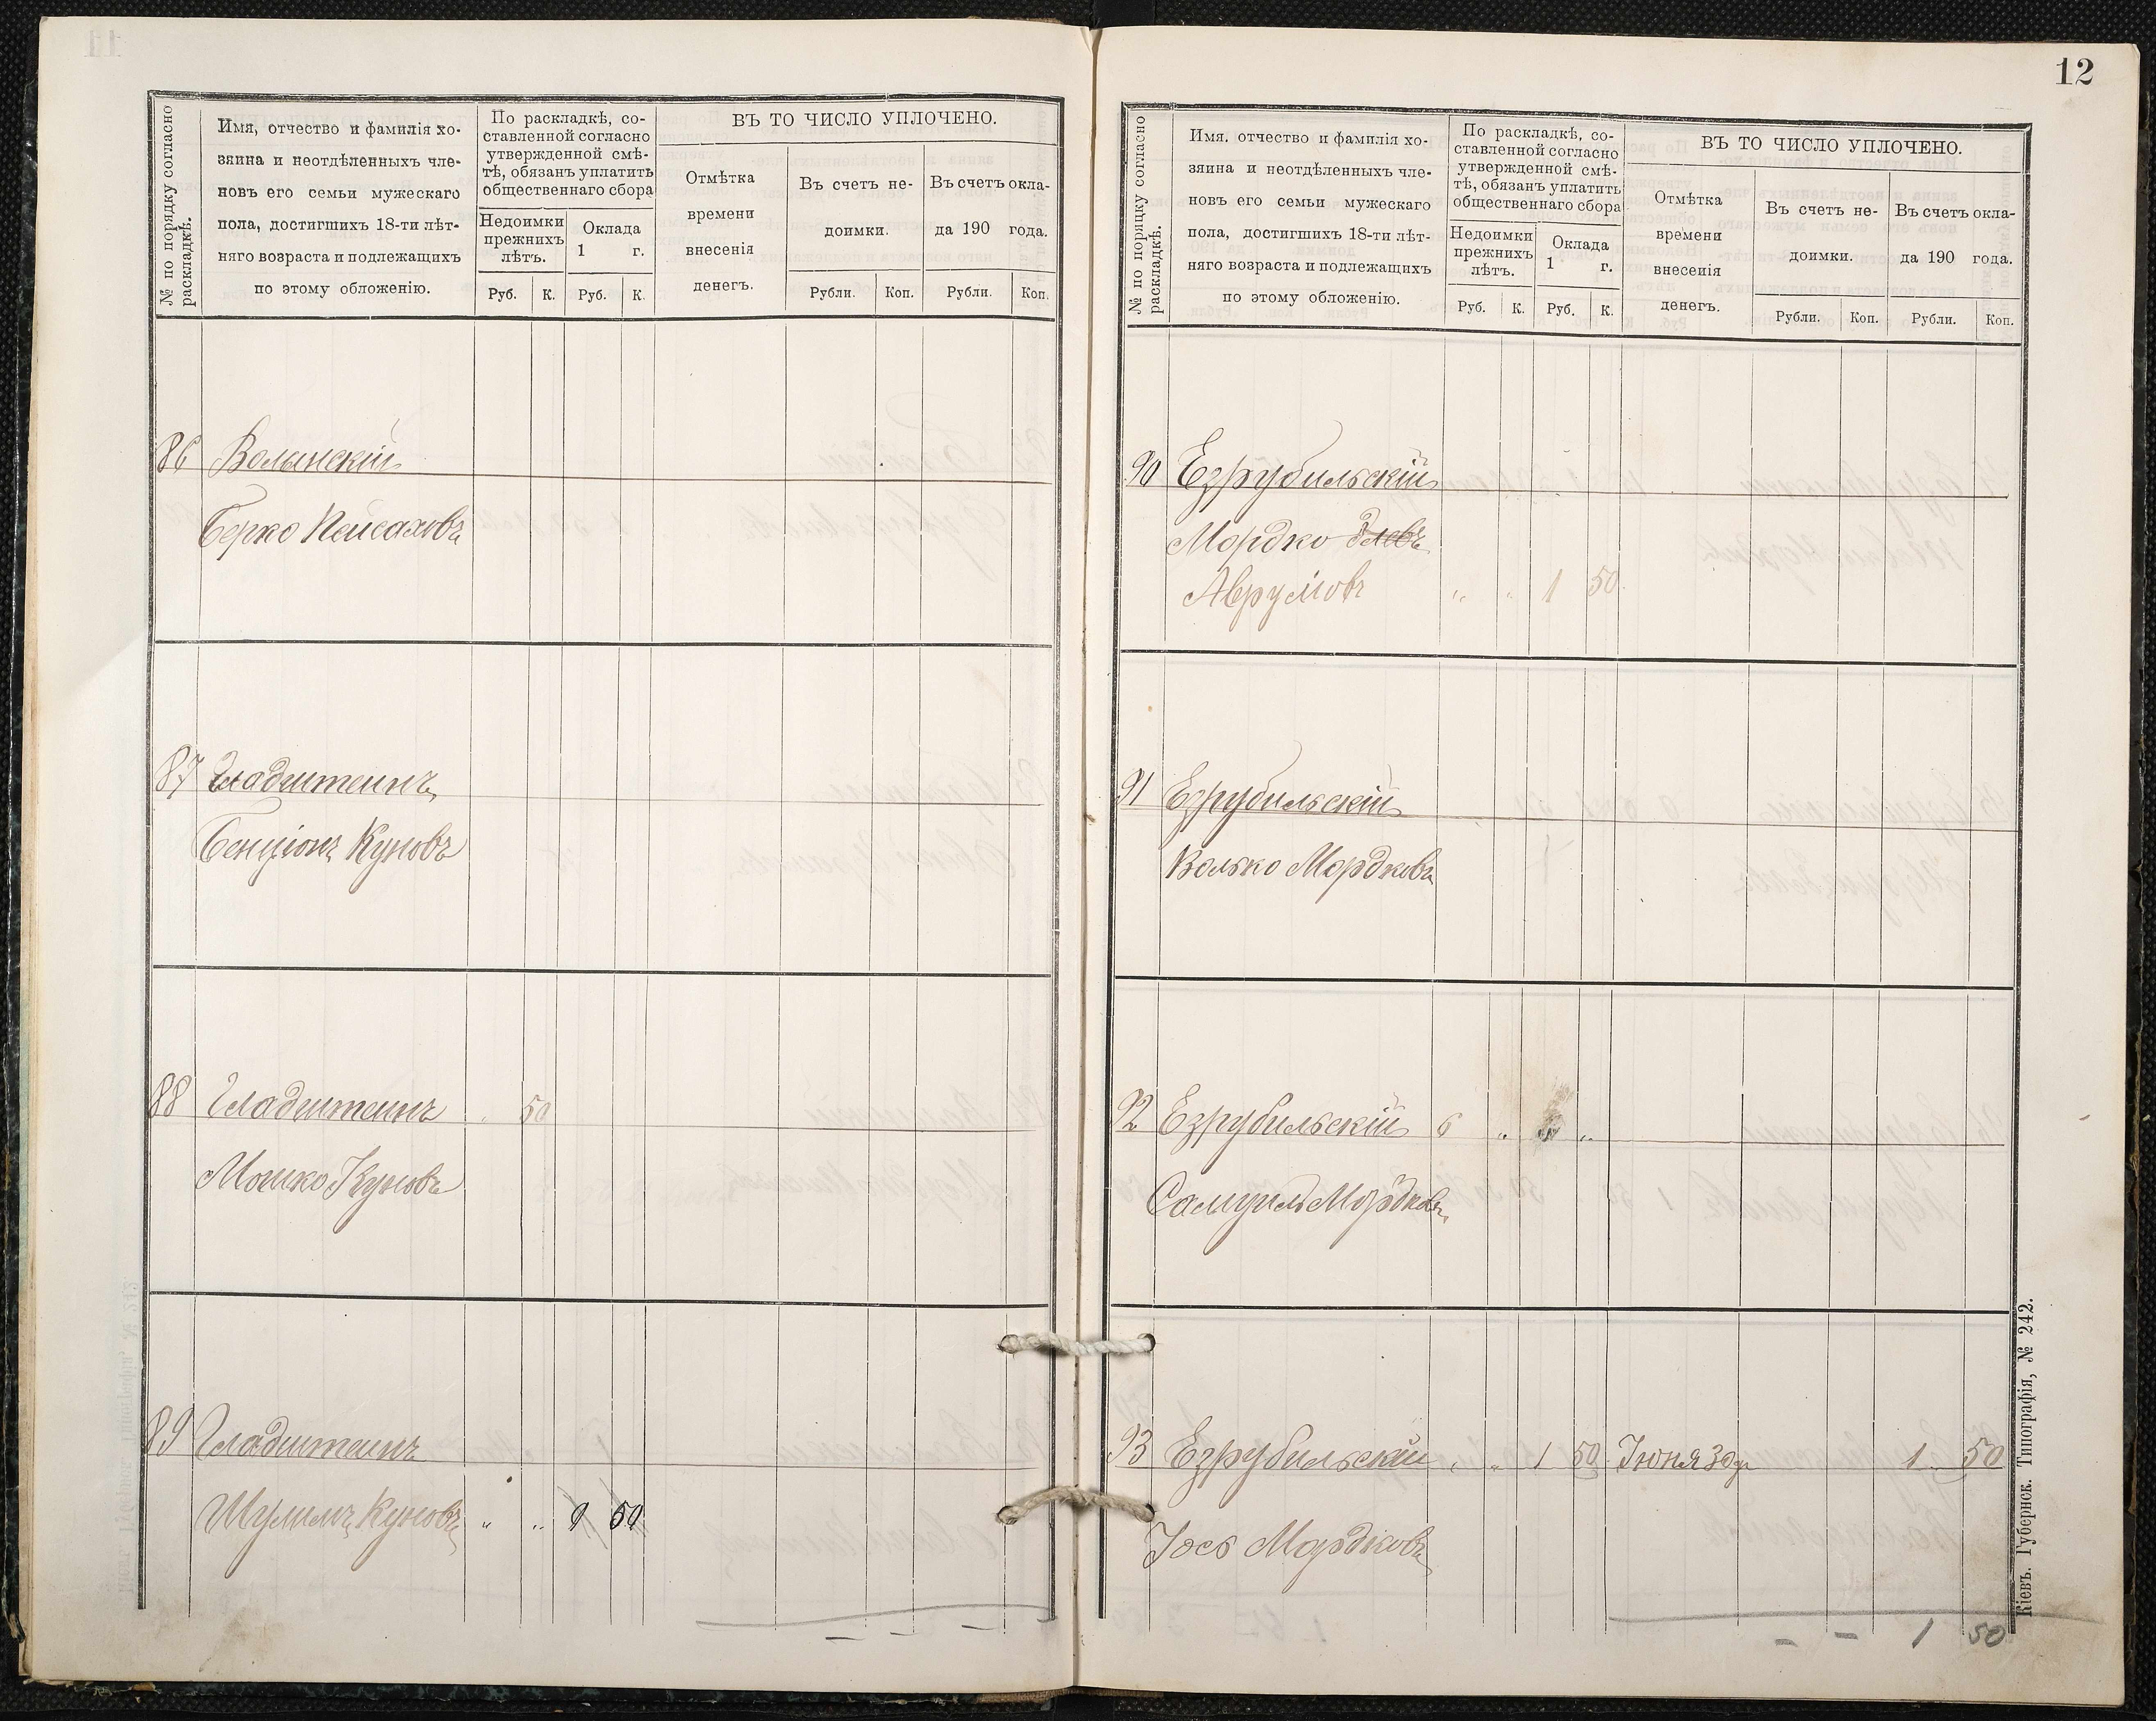 № по порядку согласно
раскладкѣ.
Имя, отчество и фамилія хо-
зяина и неотдѣленныхъ чле-
новъ его семьи мужескаго
пола, достигшихъ 18-ти лѣт-
няго возраста и подлежащихъ
по этому обложенію.
По раскладкѣ, со-
ставленной согласно
утвержденной смѣ-
тѣ, обязанъ уплатить
общественнаго сбора
Недоимки
прежнихъ
лѣтъ.
Оклада
1 г.
Руб. К. Руб. К.
ВЪ ТО ЧИСЛО УПЛОЧЕНО.
Отмѣтка
времени
внесенія
денегъ.
Въ счетъ не-
доимки.
Въ счетъ окла-
да 190 года.
Рубли. Коп. Рубли. Коп.
86 Волынскій
Берко Пейсаховъ
87 Гладштеинъ
Бенціонъ Куновъ
88 Гладштеинъ " 50
Мошко Куновъ
89 Гладштеинъ
Шулимъ Куновъ " " 1 50
— — — —
12
№ по порядку согласно
раскладкѣ.
Имя. отчество и фамилія хо-
зяина и неотдѣленныхъ чле-
новъ его семьи мужескаго
пола, достигшихъ 18-ти лѣт-
няго возраста и подлежащихъ
по этому обложенію.
По раскладкѣ, со-
ставленной согласно
утвержденной смѣ-
тѣ, обязанъ уплатить
общественнаго сбора
Недоимки
прежнихъ
лѣтъ.
Оклада
1 г.
Руб. К. Руб. К.
ВЪ ТО ЧИСЛО УПЛОЧЕНО.
Отмѣтка
времени
внесенія
денегъ.
Въ счетъ не-
доимки.
Въ счетъ окла-
да 190 года.
Рубли. Коп. Рубли. Коп.
90 Езрубильскій
Мордко
Аврумовъ " " 1 50.
91 Езрубильскій
Волько Мордковъ
92 Езрубильскій 6 " "
Самуиль Мордковъ
93 Езрубильскій " " 1 50 Іюня 30 1 50
Іось Мордковъ
— — 1 50
Кіевъ. Губернск. Типографія, № 242.